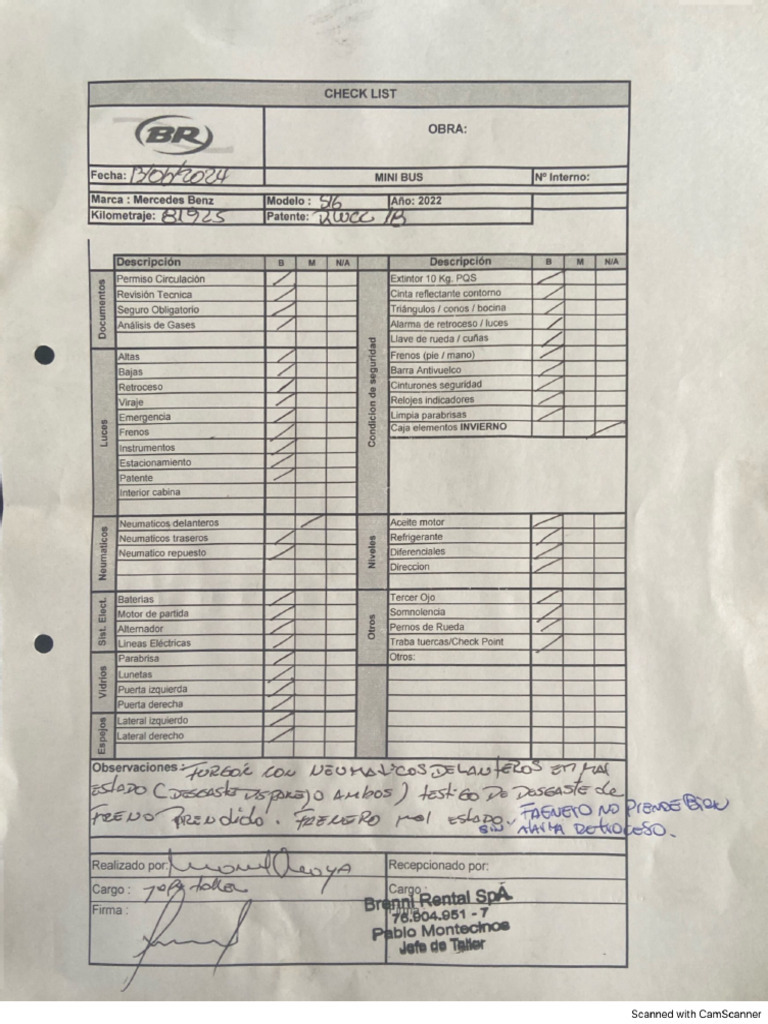 CHECK LIST
BR
OBRA:
Fecha: 13/06/2024
MINI BUS
Nº Interno:
Marca : Mercedes Benz
Modelo : 516
Año: 2022
Kilometraje: 81925
Patente: RWCC 18
Descripción B M N/A
Documentos
Permiso Circulación
Revisión Tecnica
Seguro Obligatorio
Análisis de Gases
Luces
Altas
Bajas
Retroceso
Viraje
Emergencia
Frenos
Instrumentos
Estacionamiento
Patente
Interior cabina
Neumaticos
Neumaticos delanteros
Neumaticos traseros
Neumatico repuesto
Sist. Elect.
Baterias
Motor de partida
Alternador
Lineas Eléctricas
Vidrios
Parabrisa
Lunetas
Puerta izquierda
Puerta derecha
Espejos
Lateral izquierdo
Lateral derecho
Descripción B M N/A
Condicion de seguridad
Extintor 10 Kg. PQS
Cinta reflectante contorno
Triángulos / conos / bocina
Alarma de retroceso / luces
Llave de rueda / cuñas
Frenos (pie / mano)
Barra Antivuelco
Cinturones seguridad
Relojes indicadores
Limpia parabrisas
Caja elementos INVIERNO
Niveles
Aceite motor
Refrigerante
Diferenciales
Direccion
Otros
Tercer Ojo
Somnolencia
Pernos de Rueda
Traba tuercas/Check Point
Otros:
Observaciones : FURGON CON NEUMATICOS DELANTEROS EN MAL
ESTADO ( DESGASTE DISPAREJO AMBOS ) TESTIGO DE DESGASTE de
FRENO PRENDIDO. FRENERO mal ESTADO. FAENERO NO PRENDE BIEN
SIN ALARMA RETROCESO.
Realizado por:
Recepcionado por:
Cargo : Jefe taller
Cargo :
Firma :
Brenni Rental SpA
76.904.951 - 7
Pablo Montecinos
Jefe de Taller
Scanned with CamScanner